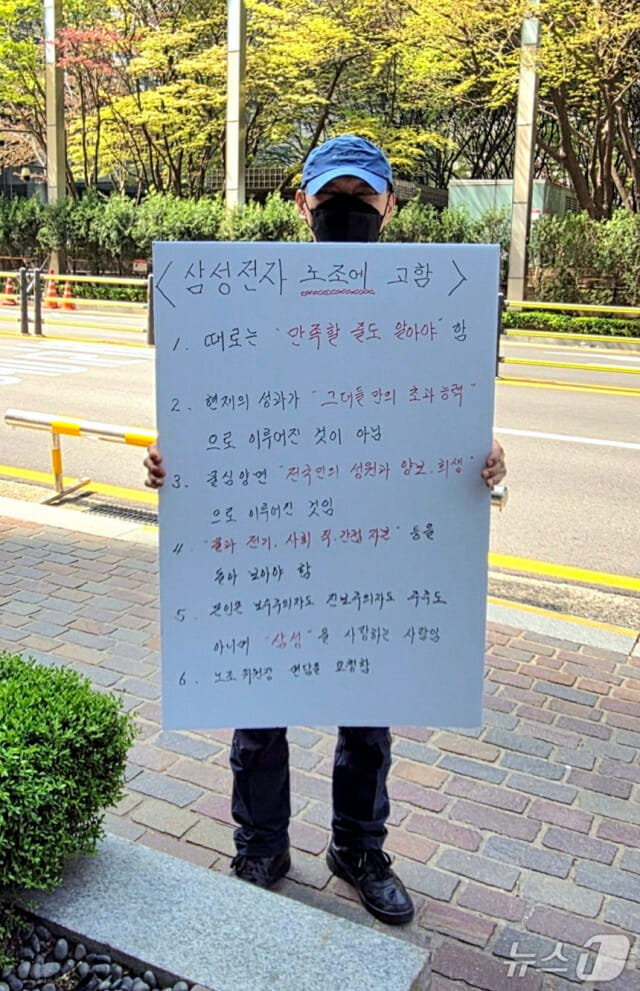 <삼성전자 노조에 고함>
1. 때로는 "만족할 줄도 알아야" 함
2. 현재의 성과가 "그대들만의 초과능력"
으로 이루어진 것이 아님
3. 음심양면 "전국민의 성원과 양보.희생"
으로 이루어진 것임
4. "물과 전기, 사회 직.간접 자본" 등을
돌아 보아야 함
5. 본인은 보수주의자도 진보주의자도 주주도
아니며 "삼성"을 사랑하는 사람임
6. 노조 위원장 면담을 요청함
뉴스1